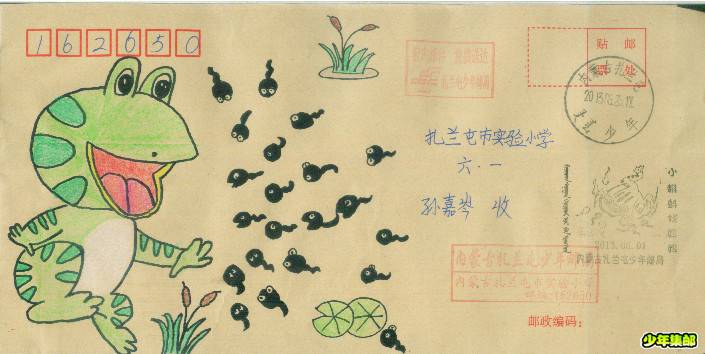 162650
贴 邮
票 处
内蒙古扎兰屯
2013.
少年
扎兰屯市实验小学
六·一
孙嘉岑 收
小蝌蚪找妈妈
2013.06.01
内蒙古扎兰屯少年邮局
内蒙古扎兰屯少年邮局
内蒙古扎兰屯市实验小学
162650
扎兰屯少年邮局
邮政编码：
少年集邮